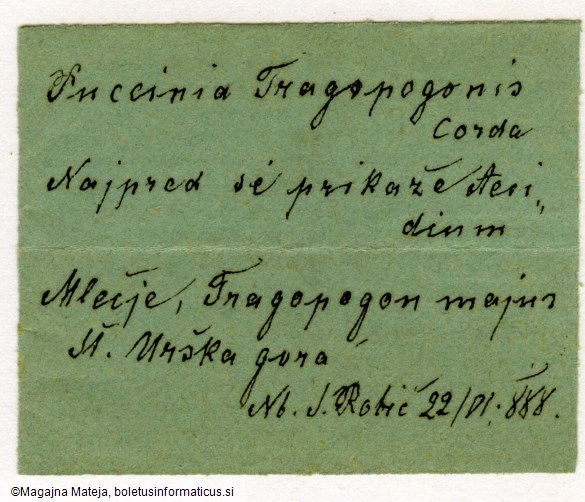 Puccinia Tragopogonis
Corda
Najpred se prikaže Aeci„
dium
Mlečje, Tragopogon majus
Št. Urška gora
Nb. S. Robič 22/VI. 888.
©Magajna Mateja, boletusinformaticus.si